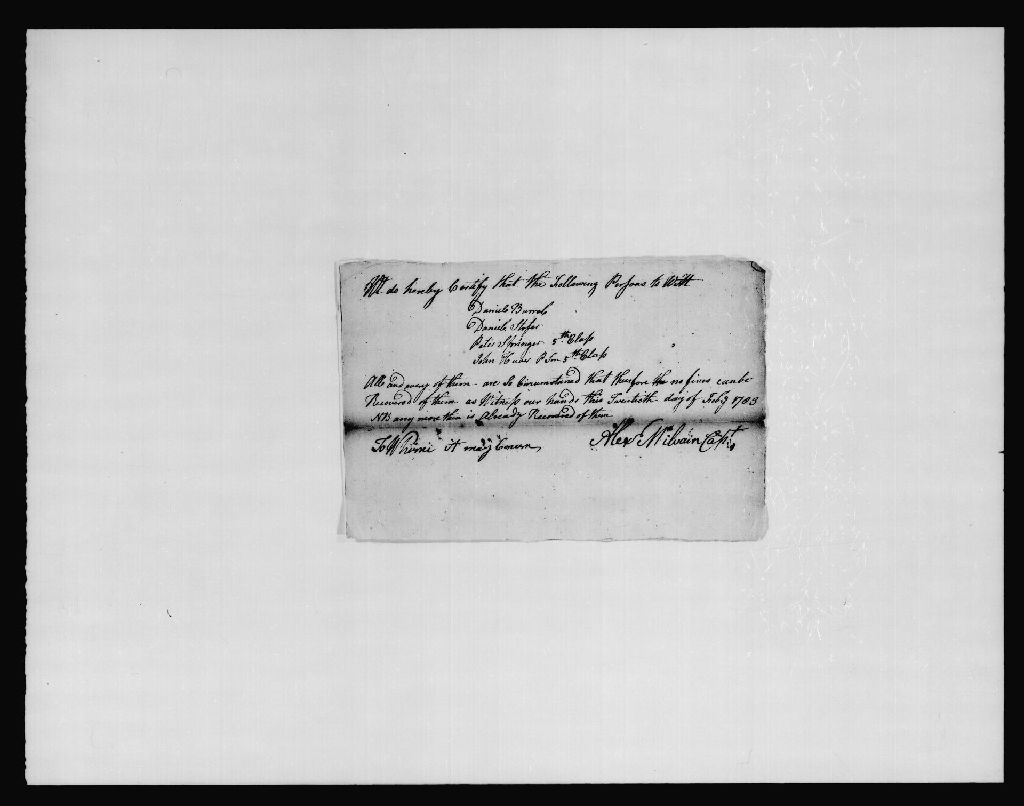 We do hereby Certify that the Following Persons to Witt
Daniel Burrel
Daniel Stofer
Peter Springer 5th Class
John Huver 5th Class
All and every of them are So Circumstanced that therefore the no fines can be
Recovered of them as Witness our hands this Twentieth day of Feby 1783
NB any more then is Already Recovered of them
To Whome it may Concern
Alexr McIlvain Capt